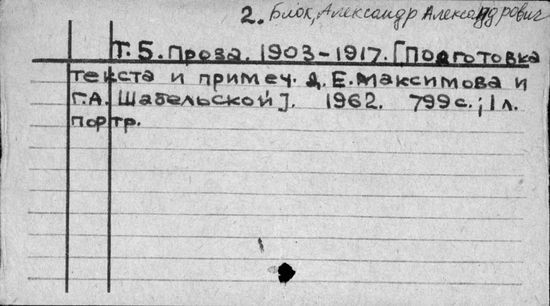 2. Блок, Александр Александрович
Т. 5. Проза. 1903-1917. [Подготовка
текста и примеч. Д. Е. Максимова и
Г. А. Шабельской]. 1962. 799 с.; 1 л.
портр.